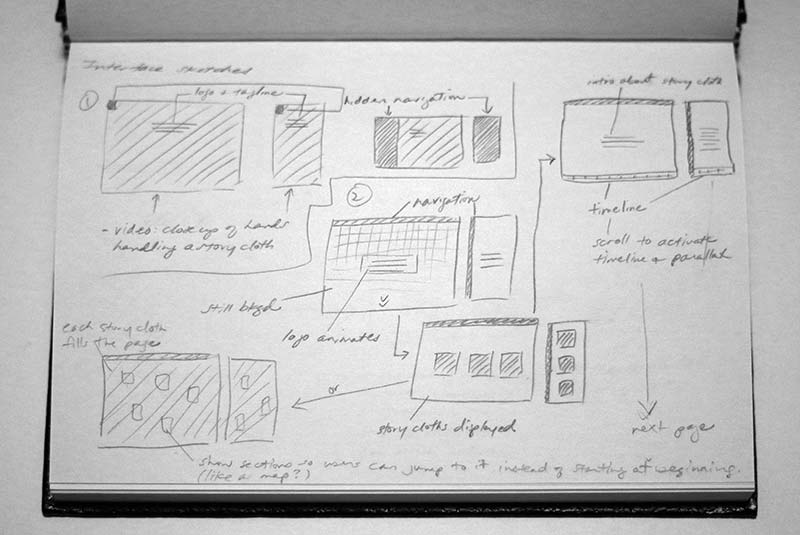 Interface sketches
①
logo & tagline
hidden navigation
- video: close up of hands
handling a story cloth
②
navigation
still bkgd
logo animates
intro about story cloth
timeline
scroll to activate
timeline & parallax
each story cloth
fills the page
or
story cloths displayed
next page
show sections so users can jump to it instead of starting at beginning.
(like a map?)